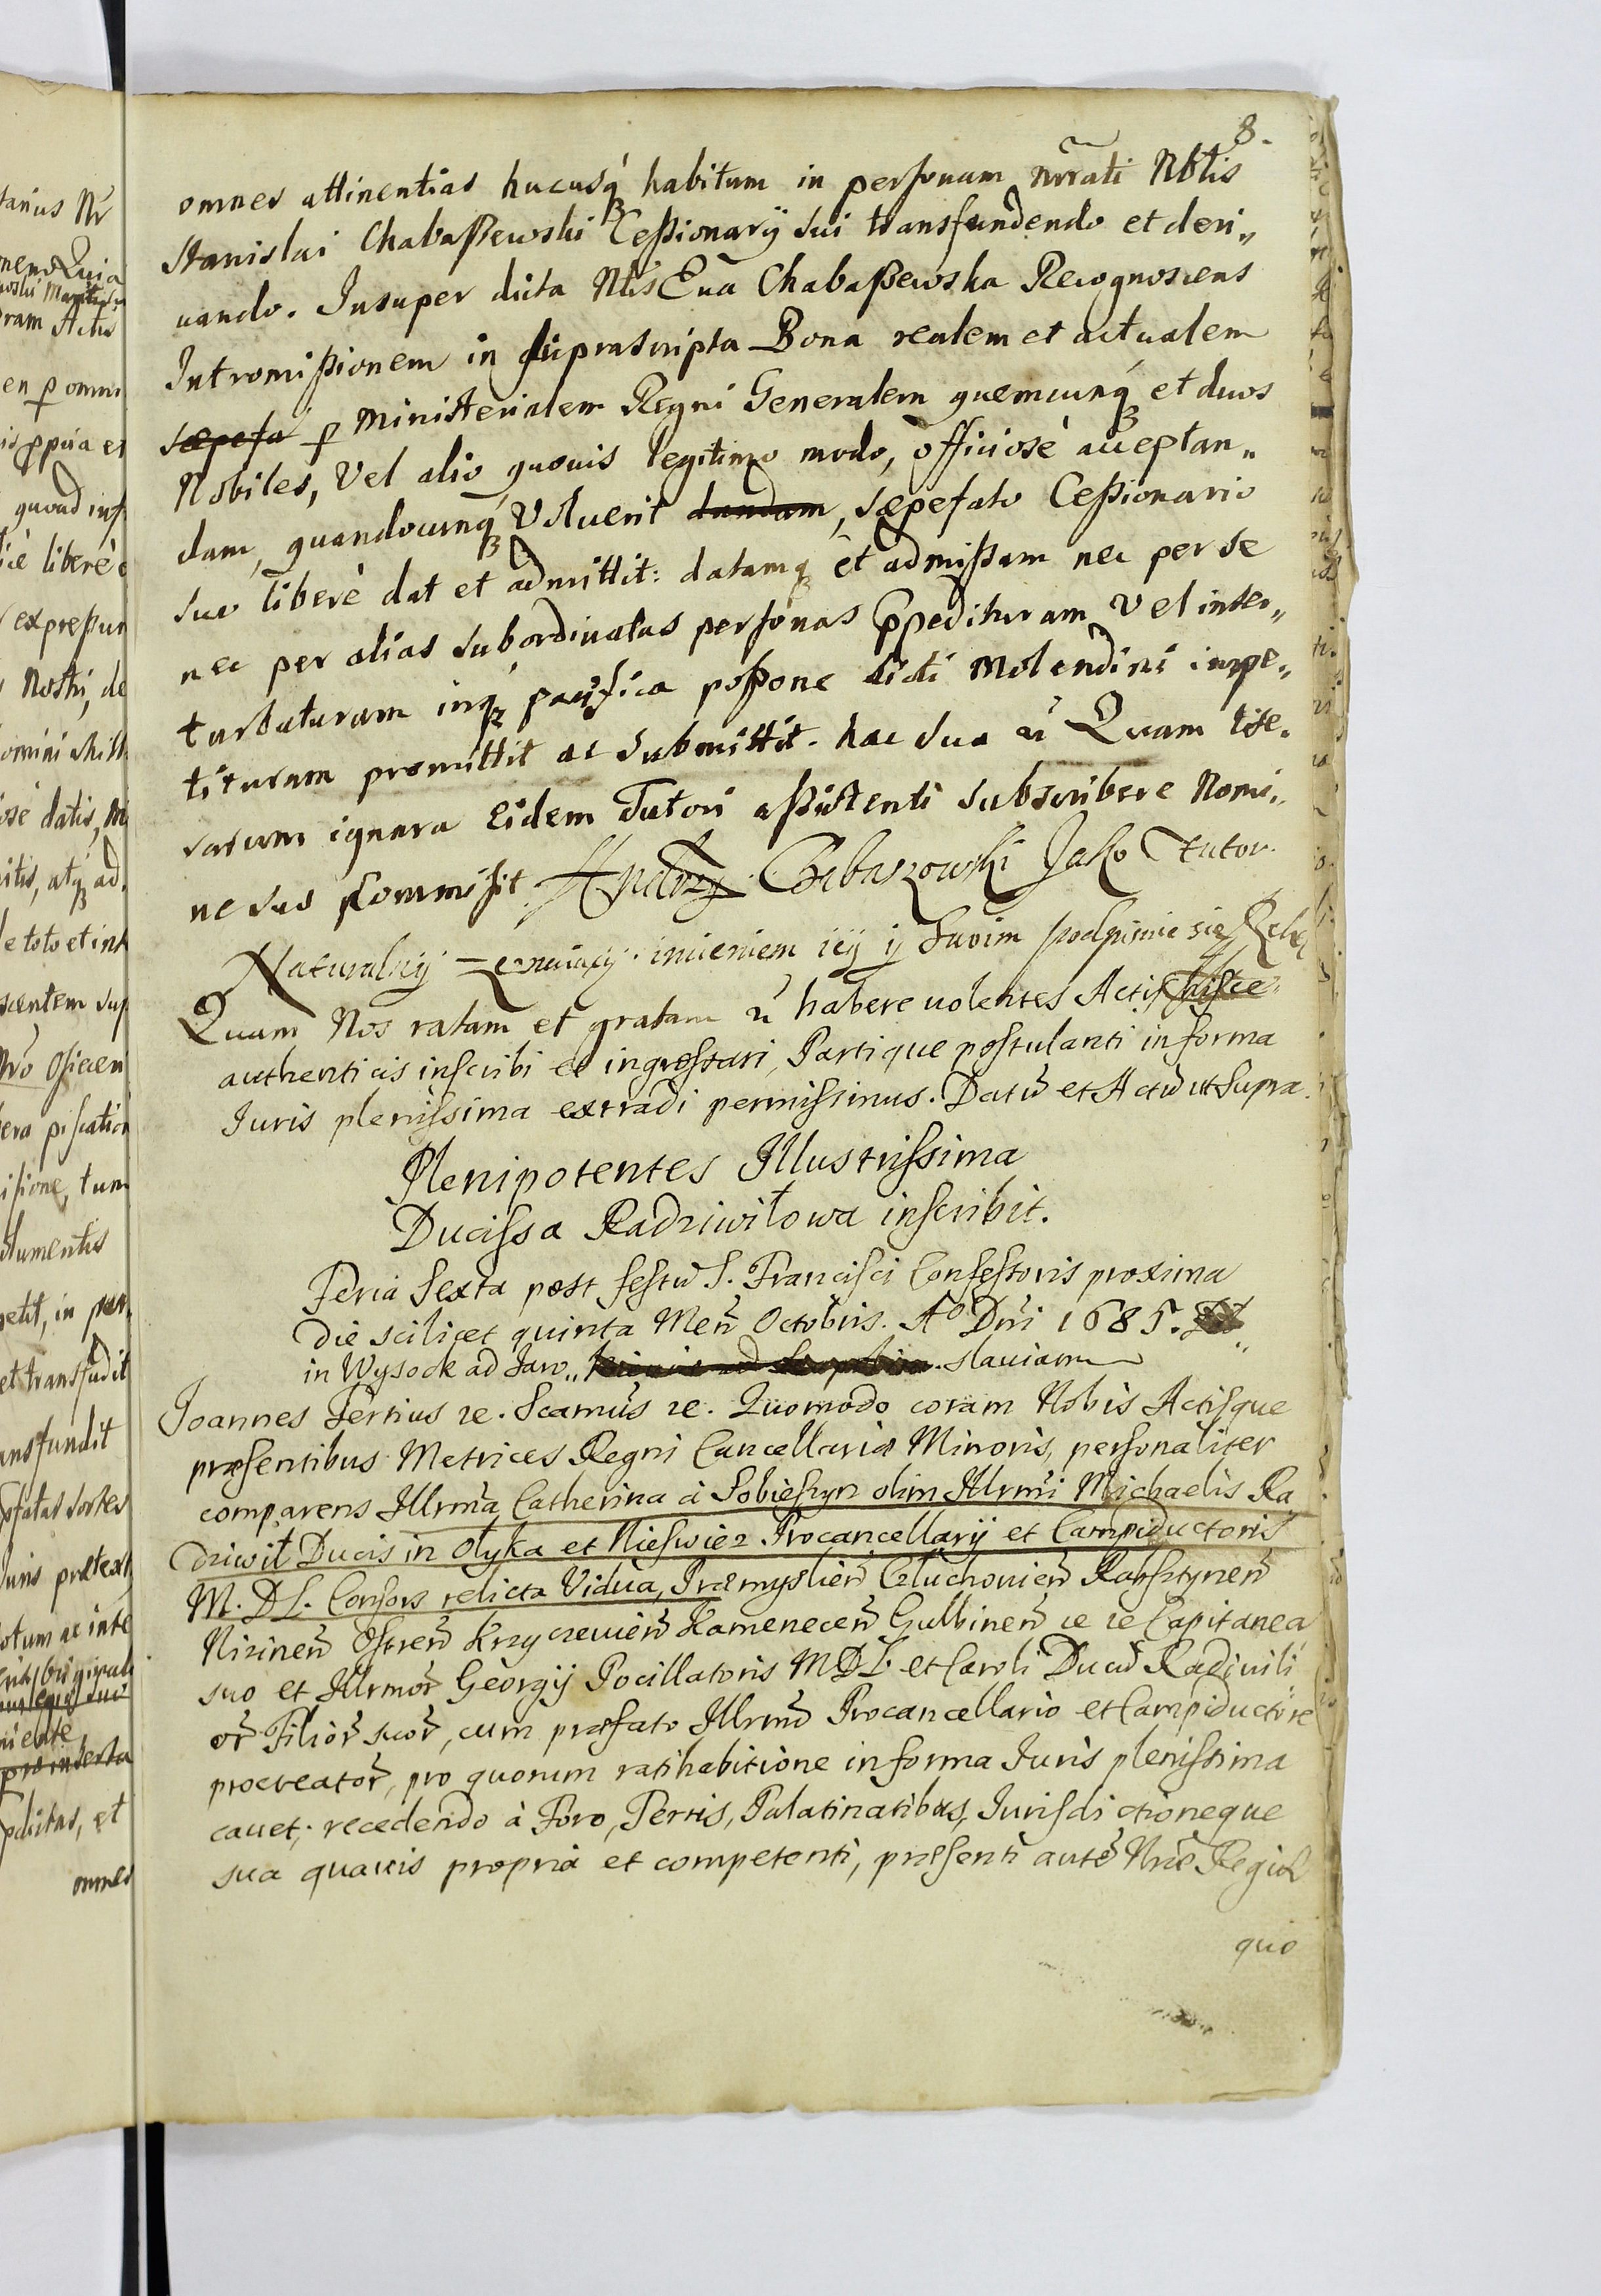 8.
omnes attinentias hucusq́ habitum in personam nrrati Nbtis
Stanislai Chabaszewski Cessionarÿ sui transfundendo et deri„
uando. Insuper dicta Nbtis Eua Chabaszewska Recognoscens
Intromissionem in suprascripta Bona realem et actualem
sæpefa p Ministerialem Regni Generalem quemcunq́ et duos
Nobiles, Vel alio quouis legitimo modo, officiosè acceptan„
dam, quandocunq́ Voluerit dandam, sæpefato Cessionario
suo liberè dat et admittit: datamq́ et admissam nec per se
nec per alias subordinatas personas Ppedituram Vel inter„
turbaturam inq́ pacifica possone dicti Molendini impe„
tituram promittit ac submittit. hac sua ữ Quam lite„
rarum ignara eidem Tutori assistenti subscribere Nomi„
ne suo commisit. Andrzy Chabaszowski Jako Tutor
Naturalny Zeznaiący imieniem iey y Swoim podpisuie się Ręką
Quam Nos ratam et gratam ữ habere uolentes Actis hisce
authenticis inscribi et ingrossari, Partique postulanti in forma
Iuris plenissima extradi permissimus. Datũ et Actũ ut Supra.
Plenipotentes Illustrissima
Ducissa Radziwiłowa inscribit.
Feria Sexta post festũ S. Francisci Confessoris proxima
die scilicet quinta Meñ Octobris. Aº Dñi 1685.
in Wysock ad Jaro„ slauiam
Joannes Tertius re. Scamus re. Quomodo coram Nobis Actisque
præsentibus Metrices Regni Cancellariæ Minoris, personaliter
comparens Illrma Catherina à Sobieszyn olim Illrmi Michaelis Ra
dziwił Ducis in Olyka et Nieswiez Procancellarij et Campiductoris
M. D L. Consors relicta Vidua, Præmyslień Człuchouień Rabsztyneñ
Nizineñ Ostreñ Krzyczeuieñ Kameneceñ Gulbineñ re re Capitanea
suo et Illrmoř Georgij Pocillatoris MDL et Caroli Ducũ Radiuili„
oř Filioř suoř, cum præfato Illrmo Procancellario et Campiductore
procreatoř, pro quorum ratihabitione in forma Iuris plenissima
cauet; recedendo à Foro, Terris, Palatinatibus, Iurisdictioneque
sua quauis propria et competenti, præsenti autẽ Nrãe Regiæ
quo